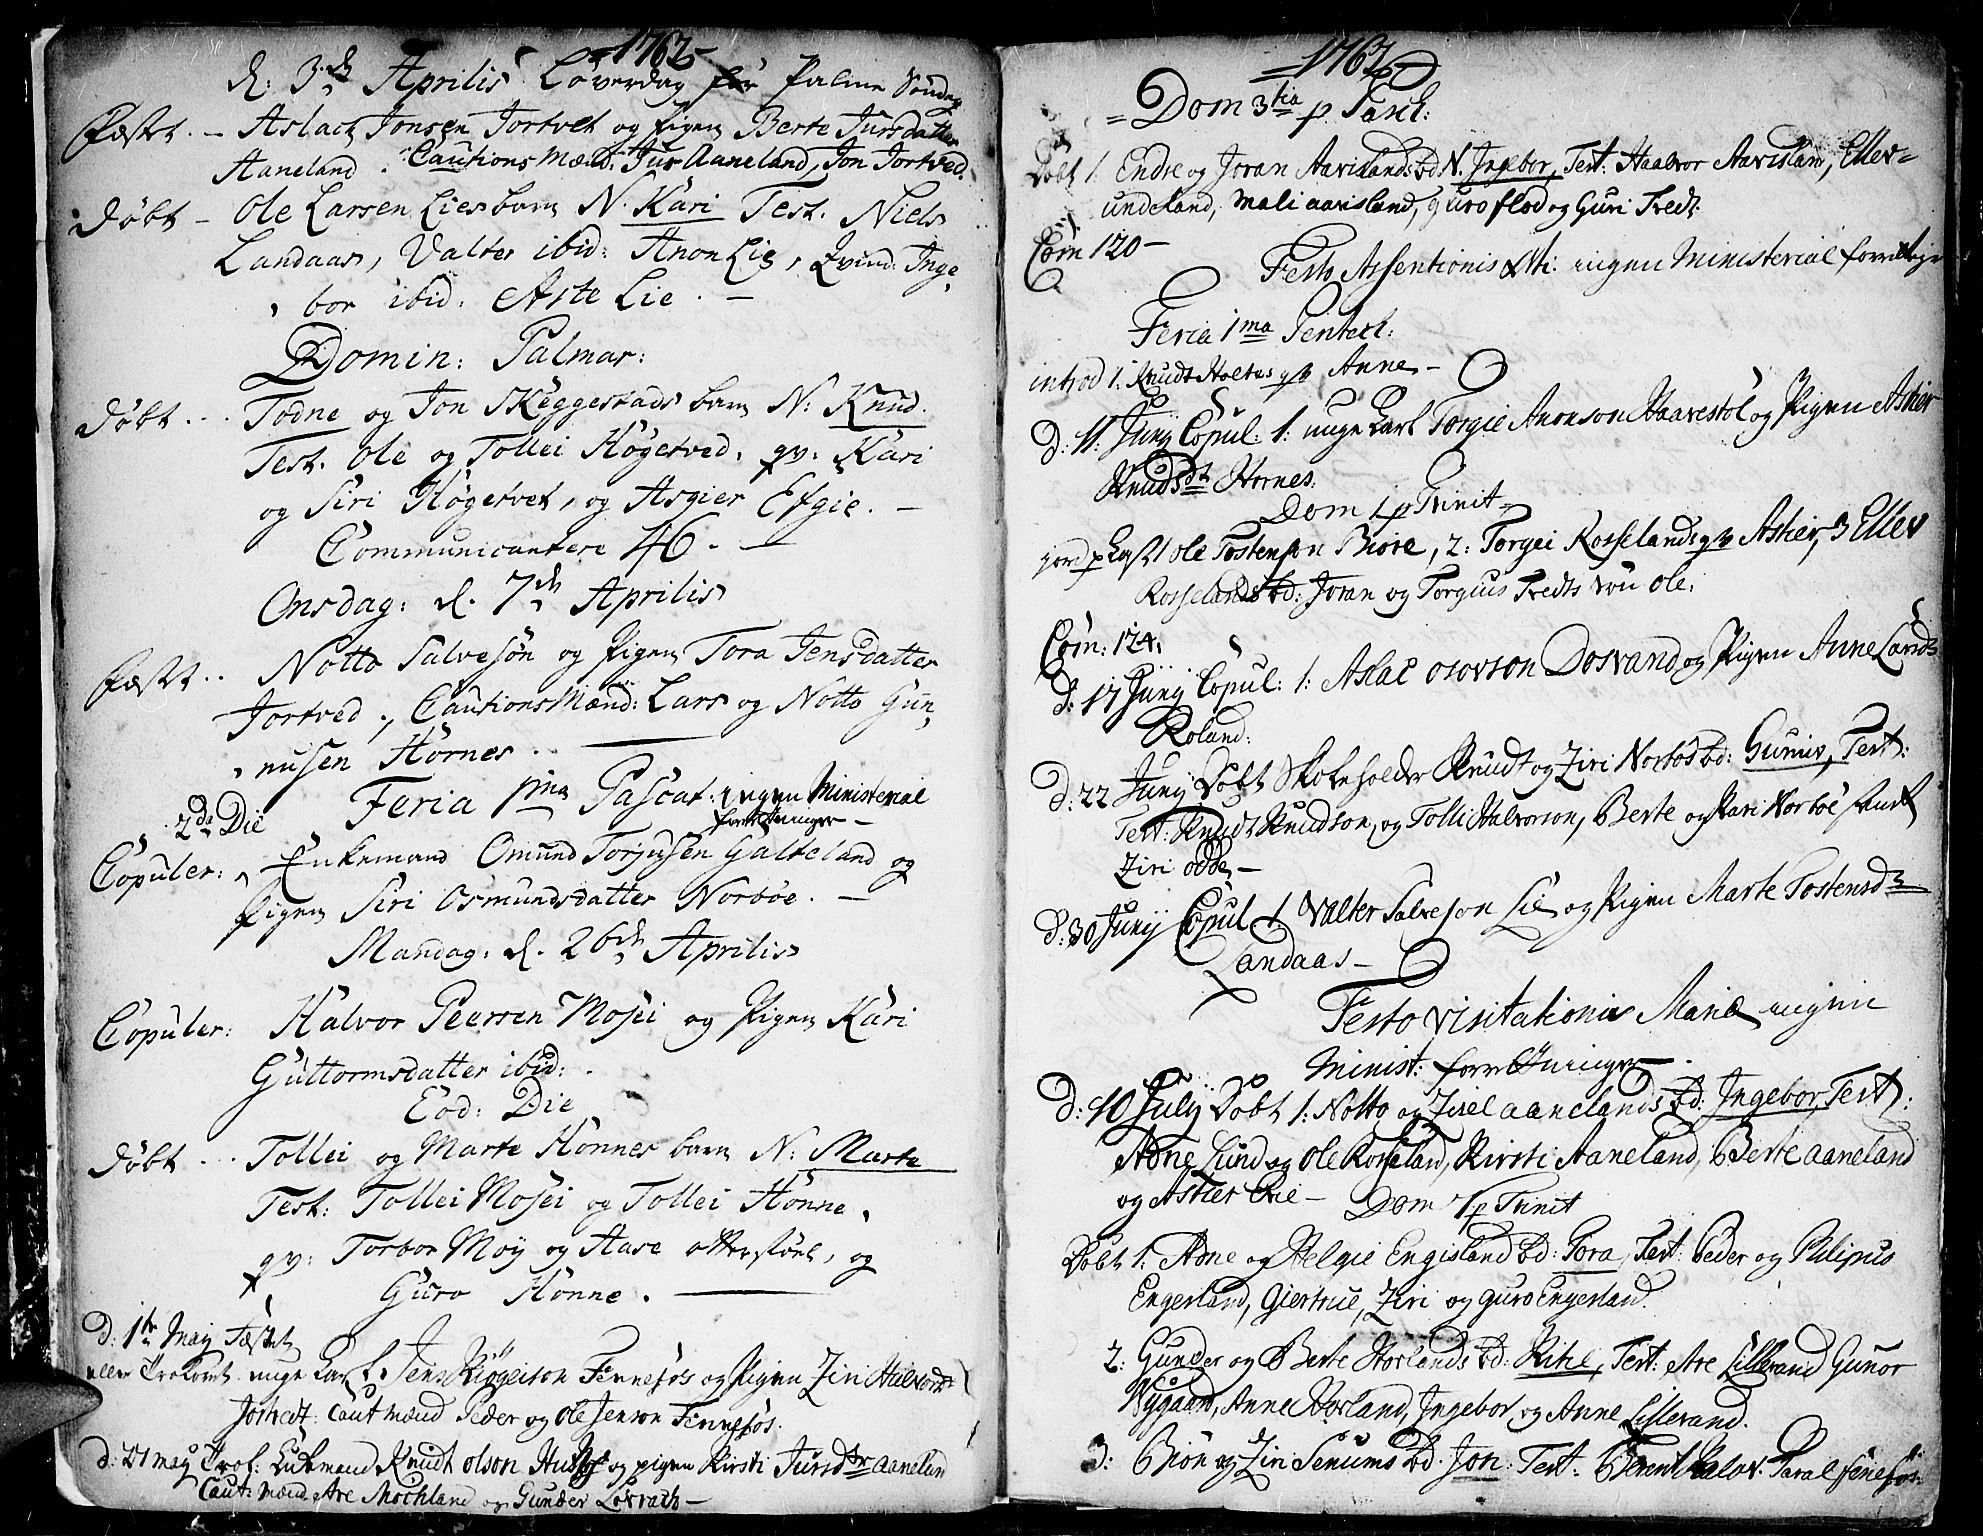 1762
d: 3de Aprilis Løverdag før Palme Søndag
Fæstet. - Aslach Jonsen Jortvet og Pigen Berte Jursdatter
Aaneland. Cautions Mænd: Jur Aaneland, Jon Jortved.
Døbt - Ole Larsen Lies barn N. Kari Test. Niels
Landaas, Valter ibid: Anon Lie, Qvind: Inge
bor ibid: Aste Lie. -
Domin: Palmar:
Døbt... Todne og Jon Skeggestads barn N: Knud.
Test. Ole og Tollei Høgetved. qv: Kari
og Siri Høgetvet, og Asgier Efgie. -
Communicantere 46. -
Onsdag: d. 7de Aprilis
Fæstet.. Notto Salvesøn og Pigen Tora Jensdatter
Jortved., Cautions Mænd: Lars og Notto Gun
nusen Hornes.
Feria 1ma Pascat: ingen Ministerial
2da Die forretninger -
Copuler: Enkemand Omund Torjusen Galteland og
Pigen Siri Osmundsdatter Norbøe. -
Mandag: d. 26de Aprilis
Copuler: Halvor Peersen Mosei og Pigen Kari
Guttormsdatter ibid:
Eod: Die
Døbt... Tollei og Marte Hønnes barn N: Marte
Test: Tollei Mosei og Tollei Hønne,
qv: Torbor Moÿ og Aase, og
Guro Hønne. -
d: 1te Maij Fæstet
eller Trolovet unge Karl Jens Fennefos og Pigen Ziri Halvorsdt
Jortvedt: Caut mænd Peder og Ole Jenson Fennefos.
d: 27 maÿ Trol: Enkmand Knudt Olson og pigen Kirsti Jursdtr Aaneland
Caut: mænd Are Mochland og Gunder
1762
Dom 3tia p Pasch:
Døbt 1. Endre og Joran Aavislands bd N. Ingebor, Test: Haalvor Aavisland, Ellev
undeland, Mali aavisland, guro flod og Guri Tredt.
Com 120 -
Festo Assentionis Xsti: ingen Ministerial forretninger
Feria 1ma Pentech:
introd 1: Knudt Holtes qv Anne -
d: 11. Junij Copul: 1: unge Karl Torgie Anonson Haavestøl og Pigen Asher
Knudsdt Hornes.
Dom 1 p Trinit
1 Ole Tostenson Biore, 2: Torgei Rosselands qv Asher, 3 Ellev
Rosselands bd: Joran og Torgius Tredts søn Ole:
Com: 124.
d: 17 Junij Copul: 1: Aslac Osovson Dosvand og Pigen Anne Larsdr
Roland:
d: 22 Junij Døbt Skoleholder Knudt og Ziri Norbøs bd: Gunius, Test:
Test: Knudt Knudson, og Tolli Halvorson, Berte og Kari Norboe samt
Ziri odde -
d: 30 Junij Copul 1. Valter Salveson Lie og Pigen Marte Tostensdr
Landaas -
Festo visitationis Mariæ ingen
Minist: forretninger.
d: 10 Julij Døbt 1: Notto og Zirel aanelands bd: Ingebor, Test:
Adne Lund og Ole Rosseland, Kirsti Aaneland, Berte aaneland
og Asher Evie - Dom 7 p Trinit
Døbt 1: Adne og Helgie Engisland bd: Tora, Test: Peder og Pilipus
Engersland, Giertrue, Ziri og guro Engersland.
2: Gunder og Berte Horlands bd: Kitil, Test: Are Lillesand Gunor
Nÿgaard, Anne Horland, Ingebor og Anne Lillesand.
3: Biøn og Ziri Senums bd. Jon. Test: Berent